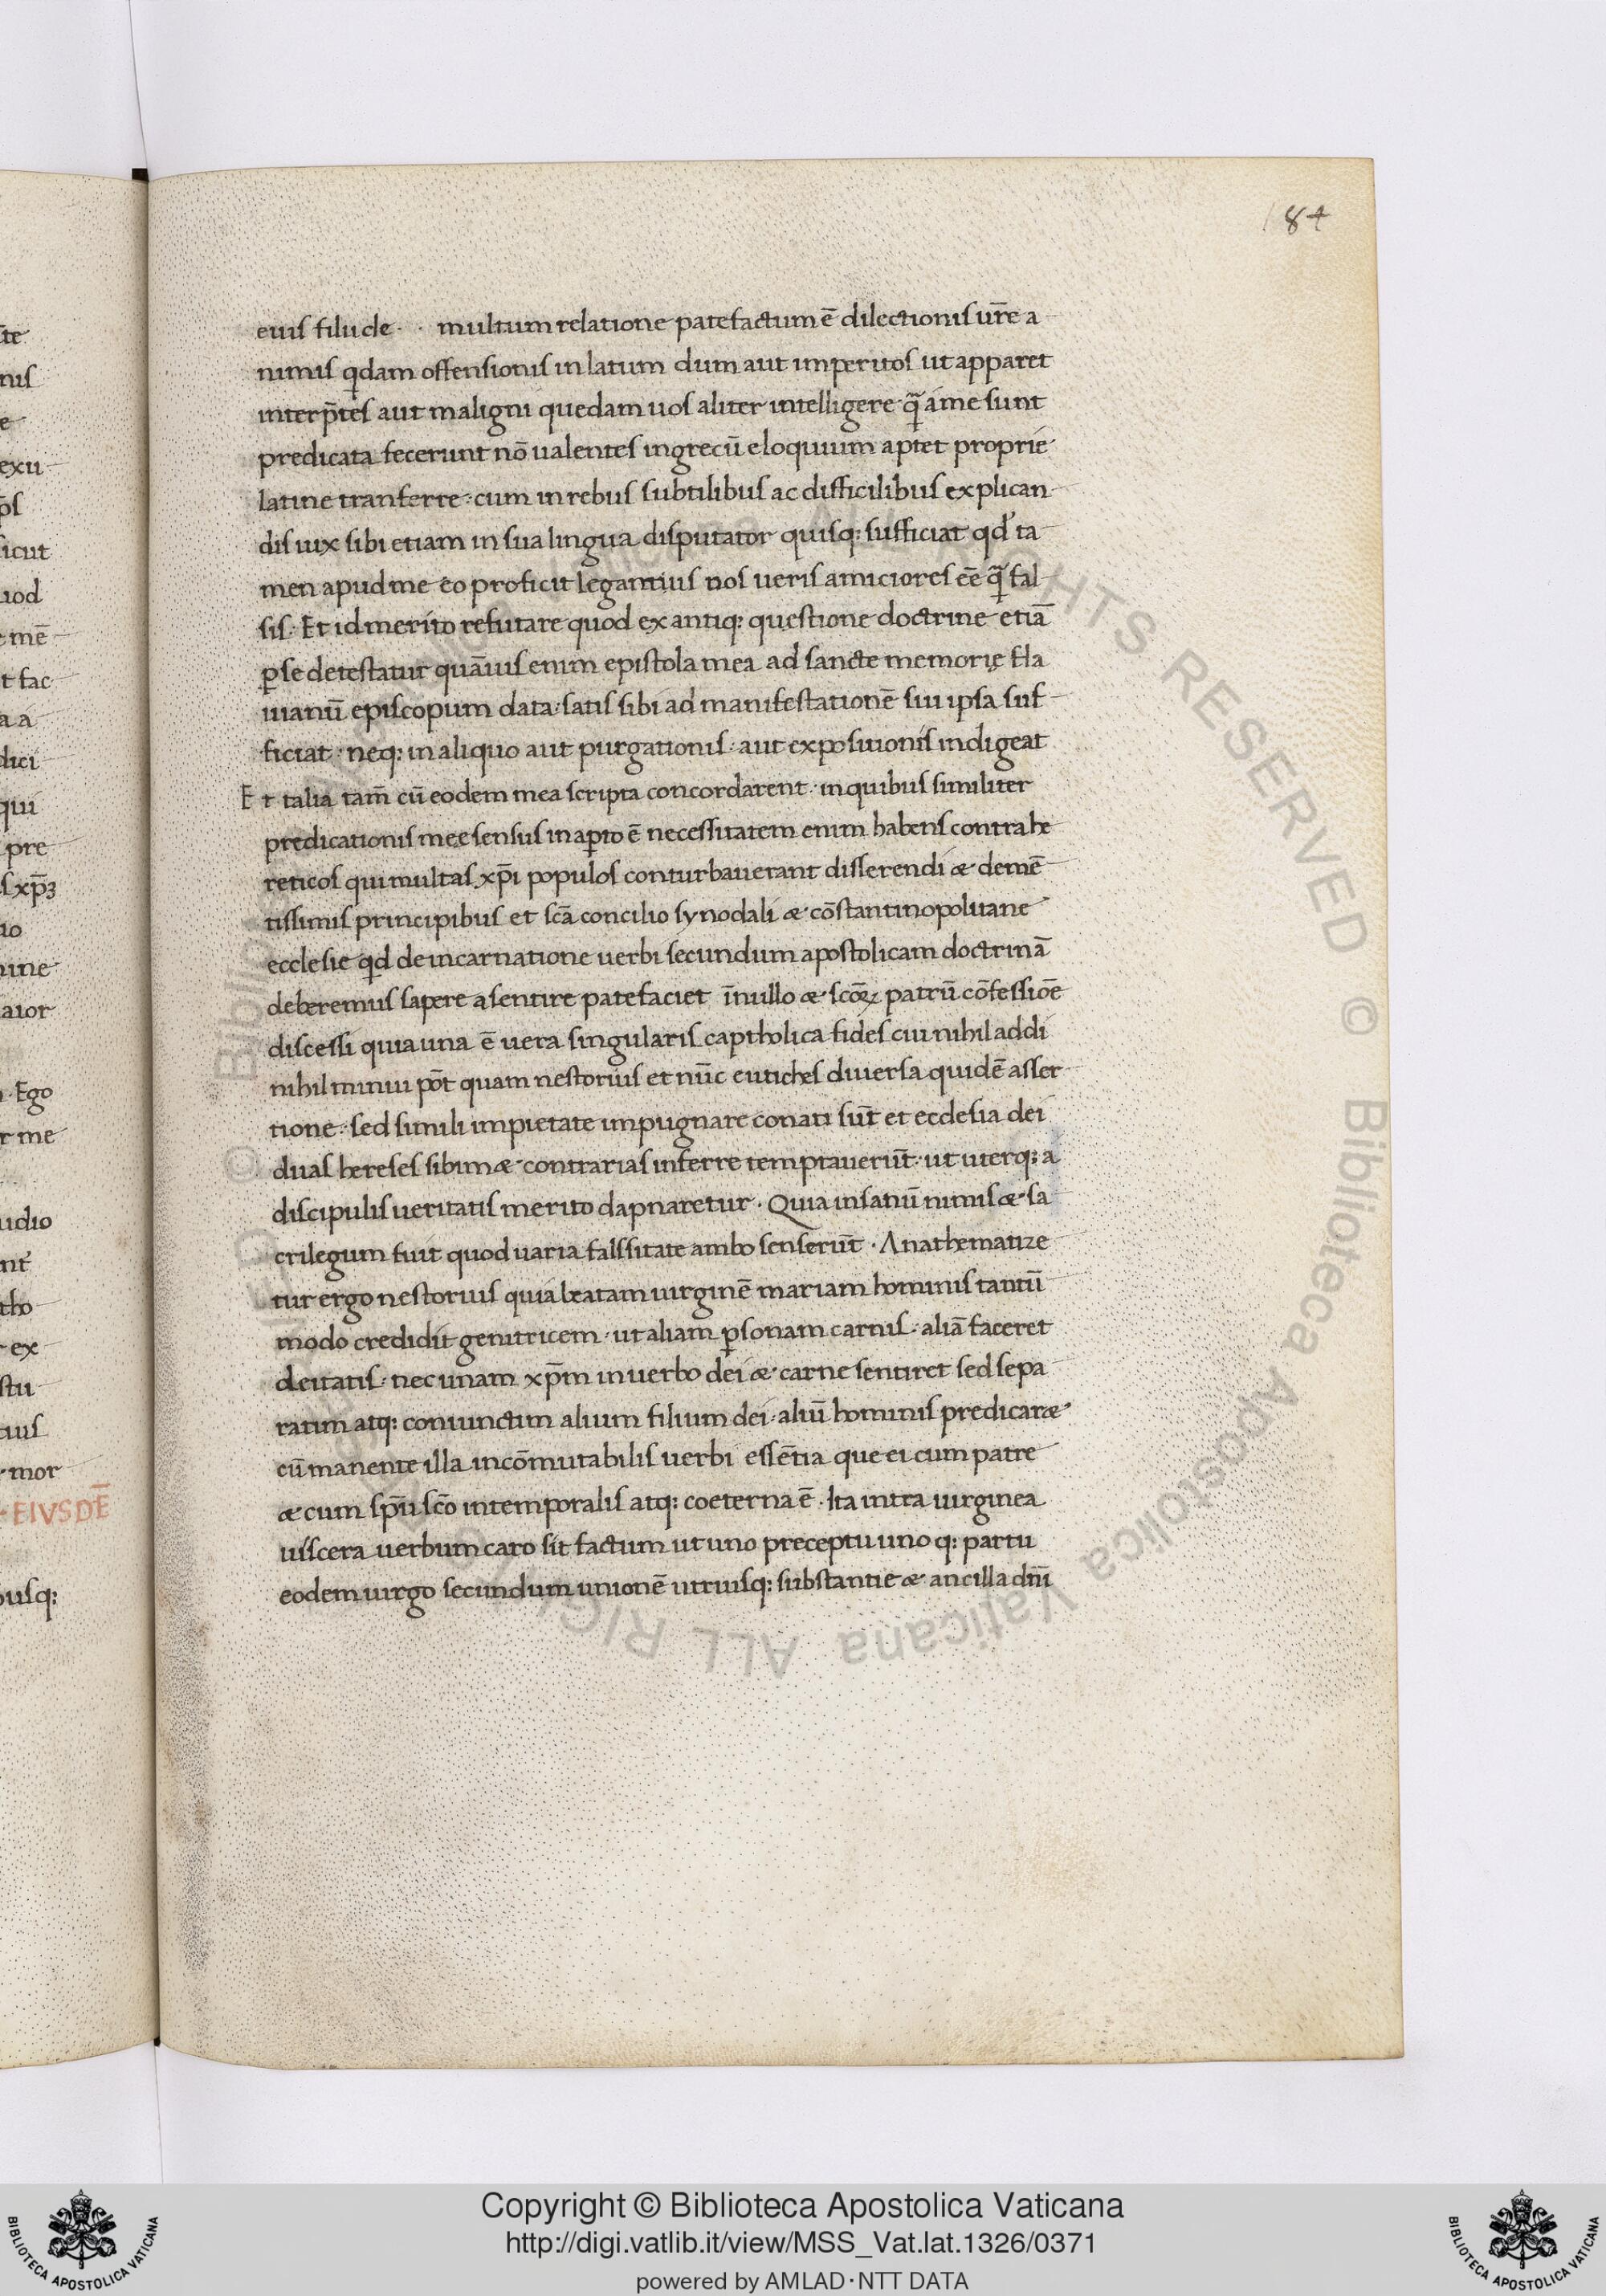 184
euis filii de · · multum relatione patefactum ē dilectionis ur̄e a
nimis qdam offensionis in latum dum aut imperitos ut apparet
interp̄tes aut maligni quedam uos aliter intelligere q̄ a me sunt
predicata fecerunt nō ualentes in grecū eloquium aptet proprie
latine tranferre · cum in rebus subtilibus ac difficilibus explican
dis uix sibi etiam in sua lingua disputator quisq: sufficiat qd ta
men apud me eo proficit legantius nos ueris amiciores ēe q̄ fal
sis · Et id merito refutare quod ex antiq: questione doctrine etiā
p se detestatur quāuis enim epistola mea ad sancte memorię fla
uianū episcopum data · satis sibi ad manifestationē sui ipsa suf
ficiat · neq: in aliquo aut purgationis · aut expositionis indigeat
Et talia tam̄ cū eodem mea scripta concordarent · in quibus similiter
predicationis mee sensus in apto ē necessitatem enim habens contra he
reticos qui multas xp̄i populos conturbauerant disserendi & demē
tissimis principibus et sc̄a concilio synodali & cōstantinopolitane
ecclesie qd de incarnatione uerbi secundum apostolicam doctrinā
deberemus sapere a sentire patefaciet īnullo & scōꝝ patrū cōfessiōe
discessi quia una ē uera singularis captholica fides cui nihil addi
nihil minui pōt quam nestorius et nūc eutiches diuersa quidē asser
tione · sed simili impietate impugnare conati sūt et ecclesia dei
duas hereses sibim& contrarias inferre temptauerūt · ut uterq: a
discipulis ueritatis merito dapnaretur · Quia insanū nimis & sa
crilegum fuit quod uaria falssitate ambo senserūt · Anathematize
tur ergo nestorius quia beatam uirginē mariam hominis tantū
modo credidit genitricem · ut aliam psonam carnis · aliā faceret
deitatis · nec unam xp̄m in uerbo dei & carne sentiret sed sepa
ratim atq: coniunctim alium filium dei · aliū hominis predicar&
cū manente illa incōmutabilis uerbi essētia que ei cum patre
& cum sp̄u sc̄o intemporalis atq: coeterna ē · Ita intra uirginea
uiscera uerbum caro sit factum ut uno preceptu uno q: partu
eodem uirgo secundum unionē utriusq: substantie & ancilla dn̄i
Copyright © Biblioteca Apostolica Vaticana
http://digi.vatlib.it/view/MSS_Vat.lat.1326/0371
powered by AMLAD·NTT DATA